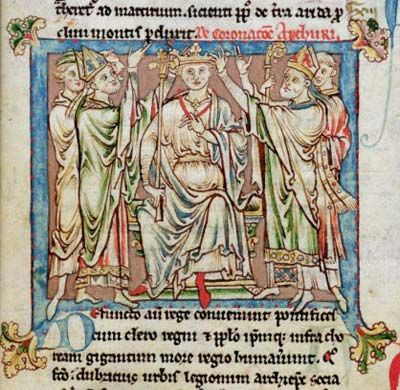 theret ad martirium. sicienti pplo de tra arida p
cliuum montis pduxit. De coronatoe Arthuri.
Defuncto aū rege conuenerunt pontifices
cum clero regni & pplo ipmq; infra cho
ream gigantum more regio humauerunt. &
dubricius urbis legionum archieps socia